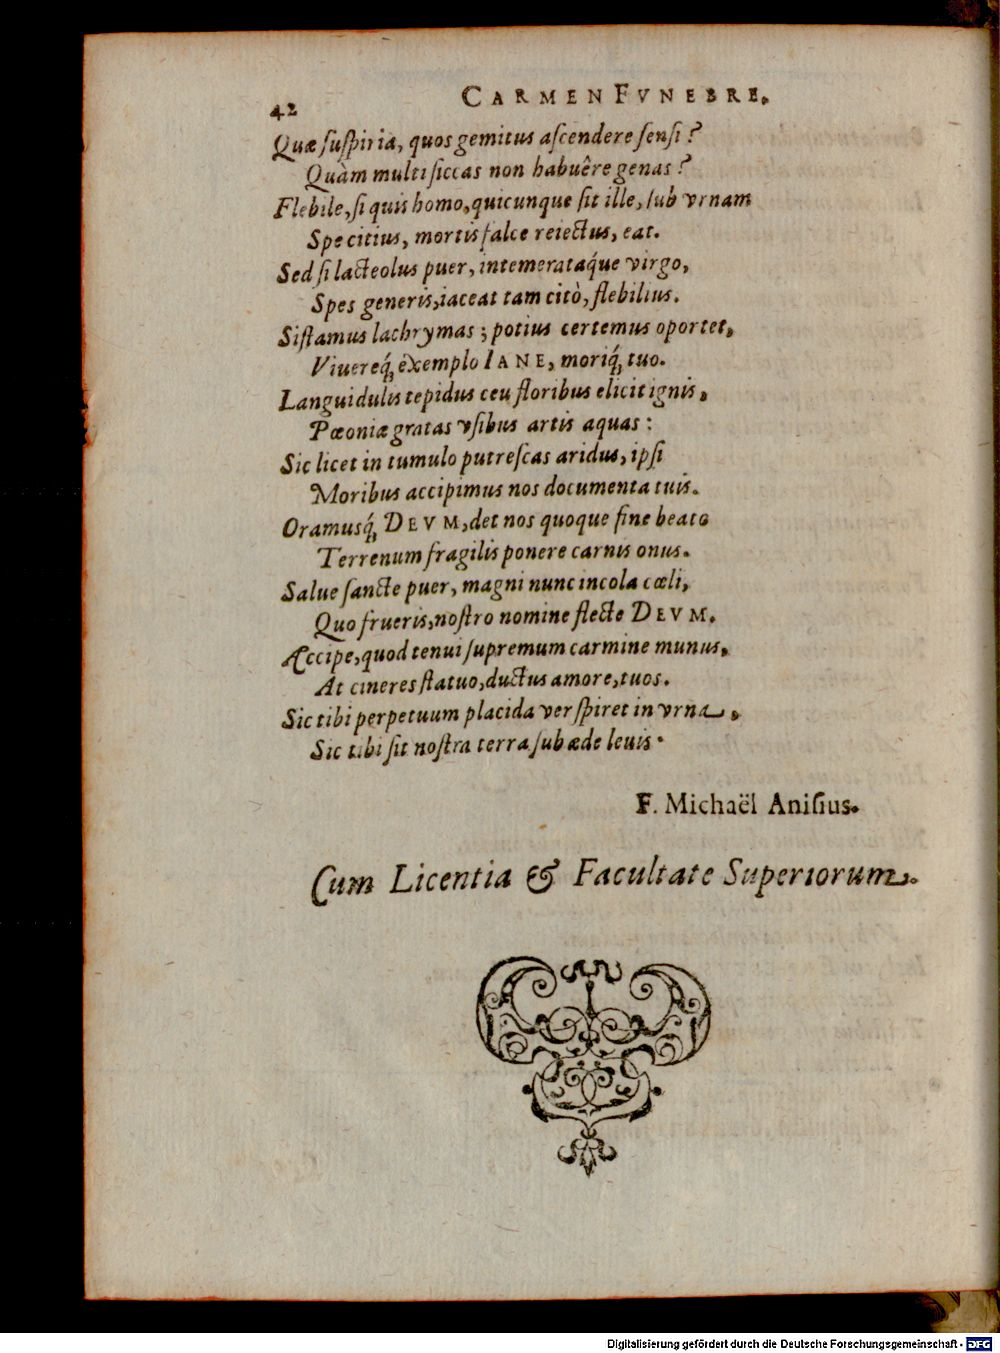 42 CARMEN FVNEBRE.
Quæ ſuſpiria, quos gemitus aſcendere ſenſi?
Quàm multi ſiccas non habuêre genas?
Flebile, ſi quis homo, quicunque ſit ille, ſub vrnam
Spe citius, mortis falce reiectus, eat.
Sed ſi lacteolus puer, intemerataq́ue virgo,
Spes generis, iaceat tam citò, flebilius.
Siſtamus lachrymas; potius certemus oportet,
Viuereq́; exemplo IANE, moriq́; tuo.
Languidulis tepidus ceu floribus elicit ignis,
Pæoniæ gratas vſibus artis aquas:
Sic licet in tumulo putreſcas aridus, ipſi
Moribus accipimus nos documenta tuis.
Oramusq́; DEVM, det nos quoque fine beato
Terrenum fragilis ponere carnis onus.
Salue ſancte puer, magni nunc incola cœli,
Quo frueris, noſtro nomine flecte DEVM.
Accipe, quod tenui ſupremum carmine munus,
At cineres ſtatuo, ductus amore, tuos.
Sic tibi perpetuum placida ver ſpiret in vrna,
Sic tibi ſit noſtra terra ſub æde leuis.
F. Michaël Aniſius.
Cum Licentia & Facultate Superiorum.
Digitalisierung gefördert durch die Deutsche Forschungsgemeinschaft - DFG